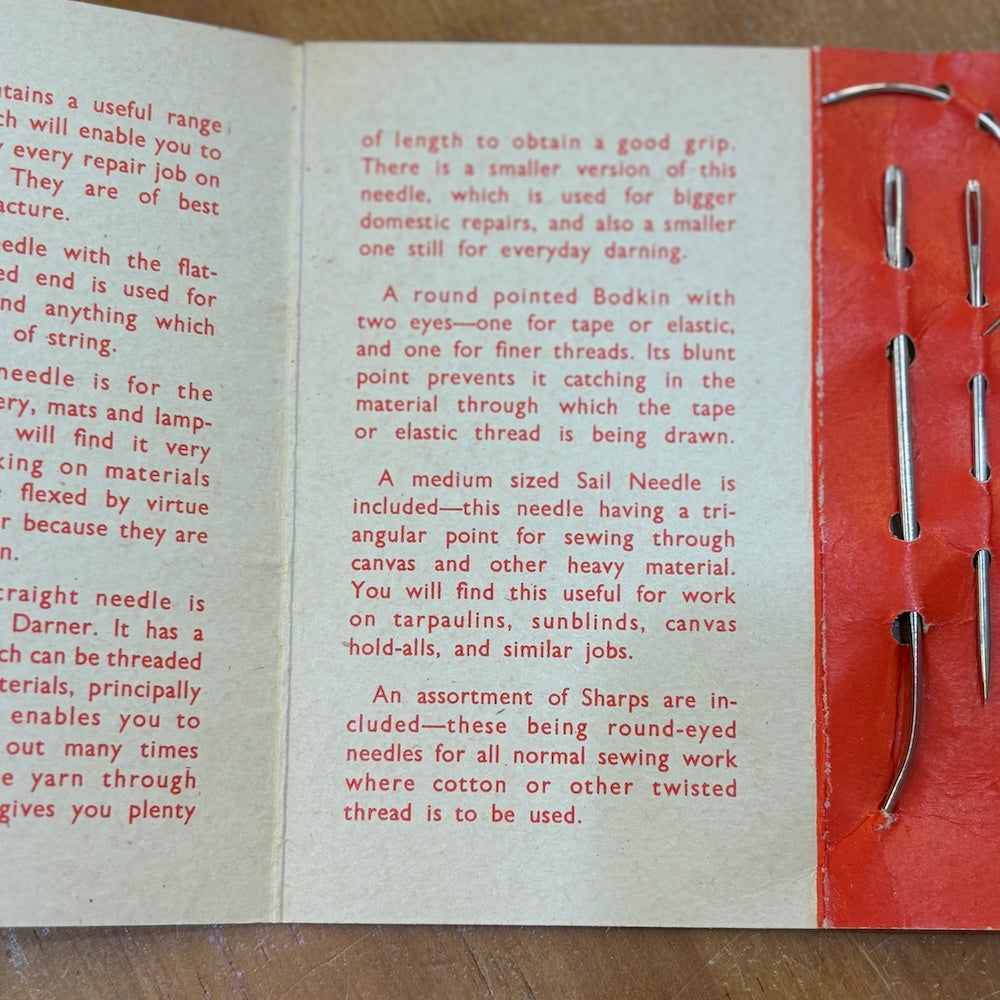 tains a useful range
ch will enable you to
every repair job on
They are of best
acture.
eedle with the flat-
ed end is used for
nd anything which
of string.
needle is for the
ery, mats and lamp-
will find it very
king on materials
flexed by virtue
r because they are
n.
traight needle is
Darner. It has a
ch can be threaded
terials, principally
enables you to
out many times
e yarn through
gives you plenty
of length to obtain a good grip.
There is a smaller version of this
needle, which is used for bigger
domestic repairs, and also a smaller
one still for everyday darning.
A round pointed Bodkin with
two eyes—one for tape or elastic,
and one for finer threads. Its blunt
point prevents it catching in the
material through which the tape
or elastic thread is being drawn.
A medium sized Sail Needle is
included—this needle having a tri-
angular point for sewing through
canvas and other heavy material.
You will find this useful for work
on tarpaulins, sunblinds, canvas
hold-alls, and similar jobs.
An assortment of Sharps are in-
cluded—these being round-eyed
needles for all normal sewing work
where cotton or other twisted
thread is to be used.